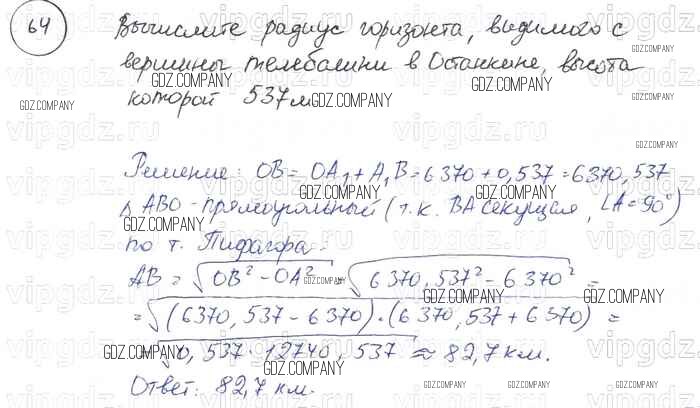 64 Вычислите радиус горизонта, видимого с
вершины телебашни в Останкине, высота
которой 537 м
Решение: OB = OA₁ + A₁B = 6370 + 0,537 = 6370,537
Δ ABO - прямоугольный (т.к. BA секущая, ∠A = 90°)
по т. Пифагора:
AB = √(OB² - OA²) = √(6370,537² - 6370²) =
= √((6370,537 - 6370)·(6370,537 + 6370)) =
√(0,537 · 12740,537) ≈ 82,7 км.
Ответ: 82,7 км.
GDZ.COMPANY
vipgdz.ru